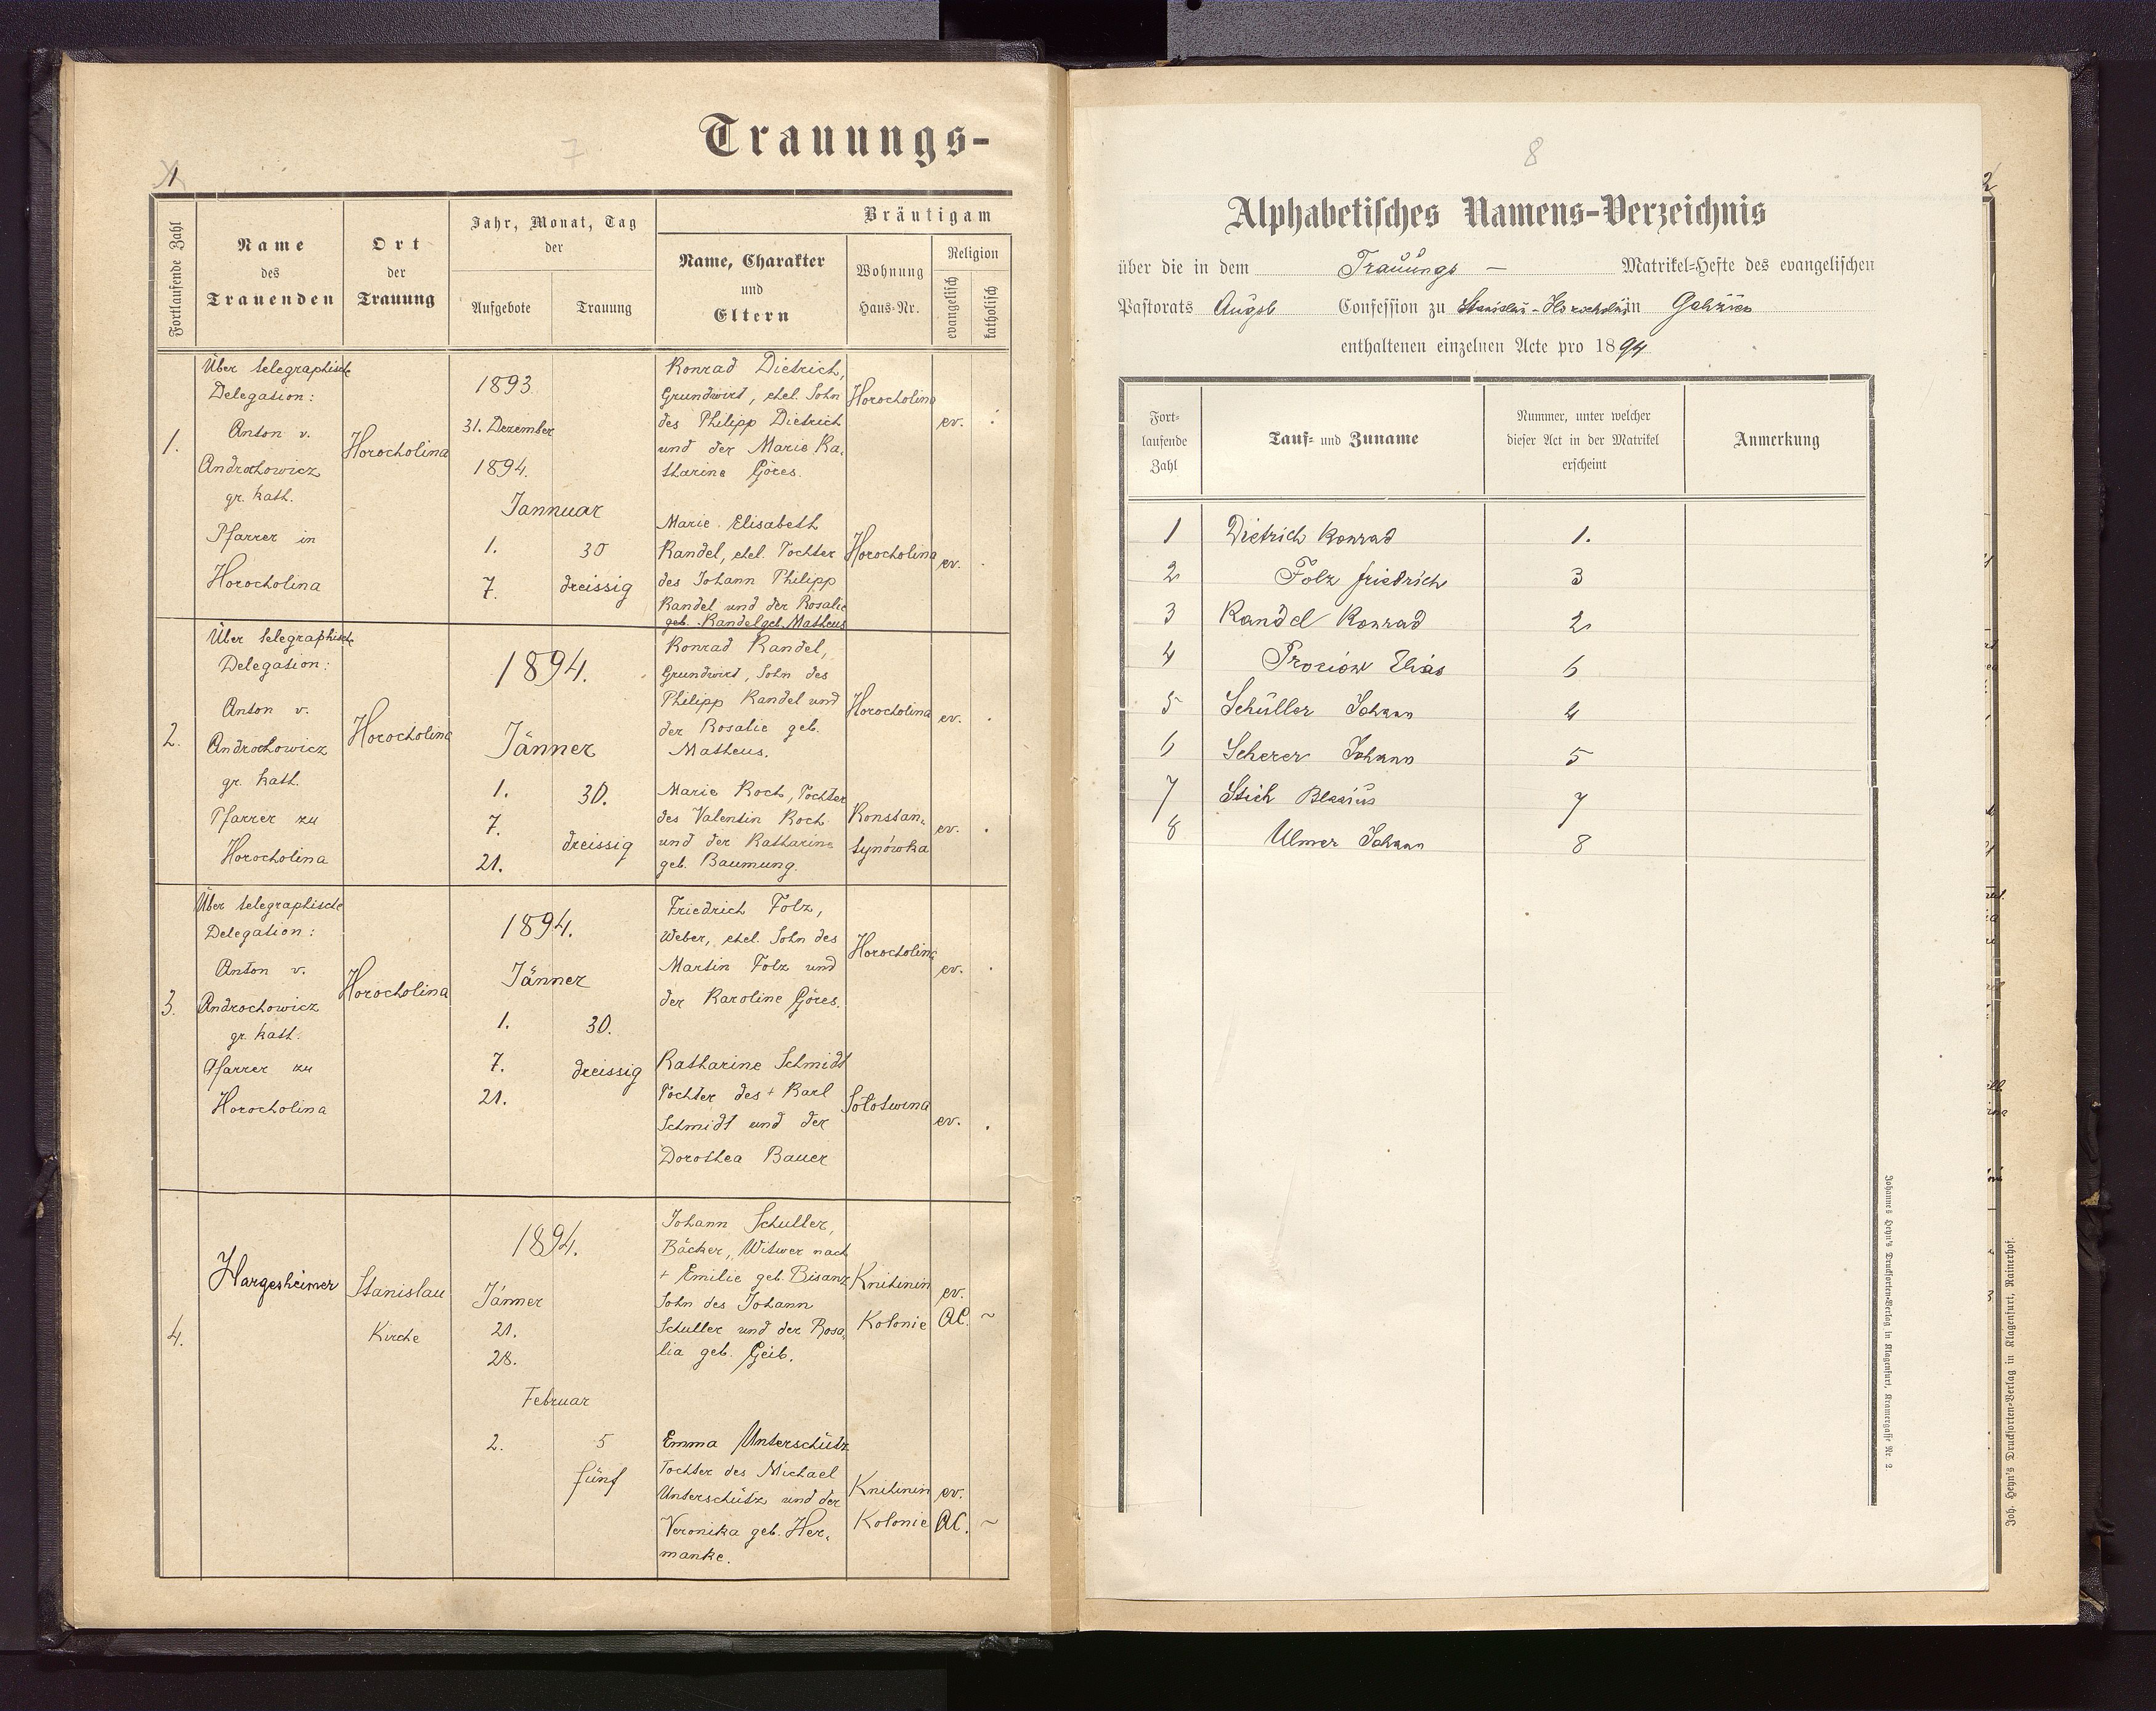 Trauungs-
7
1
Fortlaufende Zahl
Name
des
Trauenden
Ort
der
Trauung
Jahr, Monat, Tag
der
Aufgebote
Trauung
Bräutigam
Name, Charakter
und
Eltern
Wohnung
Haus-Nr.
Religion
evangelisch
katholisch
1.
Über telegraphische
Delegation:
Anton v.
Androchowicz
gr. kath.
Pfarrer in
Horocholina
Horocholina
1893.
31. Dezember
1894.
Jannuar
1.
7.
30
dreissig
Konrad Dietrich,
Grundwirt, ehel. Sohn
des Philipp Dietrich
und der Marie Ka-
tharine Göres.
Horocholina
ev.
Marie Elisabeth
Kandel, ehel. Tochter
des Johann Philipp
Kandel und der Rosalie
geb. Kandel geb. Matheus
Horocholina
ev.
2.
Über telegraphische
Delegation:
Anton v.
Androchowicz
gr. kath.
Pfarrer zu
Horocholina
Horocholina
1894.
Jänner
1.
7.
21.
30.
dreissig
Konrad Kandel,
Grundwirt, Sohn des
Philipp Kandel und
der Rosalie geb.
Matheus.
Horocholina
ev.
Marie Koch, Tochter
des Valentin Koch
und der Katharine
geb. Baumung.
Konstan-
tynówka
ev.
3.
Über telegraphische
Delegation:
Anton v.
Androchowicz
gr. kath.
Pfarrer zu
Horocholina
Horocholina
1894.
Jänner
1.
7.
21.
30.
dreissig
Friedrich Folz,
Weber, ehel. Sohn des
Martin Folz und
der Karoline Göres.
Horocholina
ev.
Katharine Schmidt
Tochter des + Karl
Schmidt und der
Dorothea Bauer
Sołotwina
ev.
4.
Hargesheimer
Stanislau
Kirche
1894.
Jänner
21.
28.
Februar
2.
5
fünf
Johann Schuller,
Bäcker, Witwer nach
+ Emilie geb. Bisanz
Sohn des Johann
Schuller und der Rosa-
lia geb. Geib.
Knihinin
Kolonie
ev.
AC.
Emma Unterschütz
Tochter des Michael
Unterschütz und der
Veronika geb. Her-
manke.
Knihinin
Kolonie
ev.
AC.
8
Alphabetisches Namens-Verzeichnis
über die in dem Trauungs - Matrikel-Hefte des evangelischen
Pastorats Augsb Confession zu Stanislau-Horocholina in Galizien
enthaltenen einzelnen Acte pro 1894
Fort-
laufende
Zahl
Tauf- und Zuname
Nummer, unter welcher
dieser Act in der Matrikel
erscheint
Anmerkung
1 Dietrich Konrad 1.
2 Folz Friedrich 3
3 Kandel Konrad 2
4 Prociow Elias 6
5 Schuller Johann 4
6 Scherer Johann 5
7 Stich Blasius 7
8 Ulmer Johann 8
Johannes Heyn's Drucksorten-Verlag in Klagenfurt, Kramergasse Nr. 2.
Joh. Heyn's Drucksorten-Verlag in Klagenfurt, Rainerhof.
2